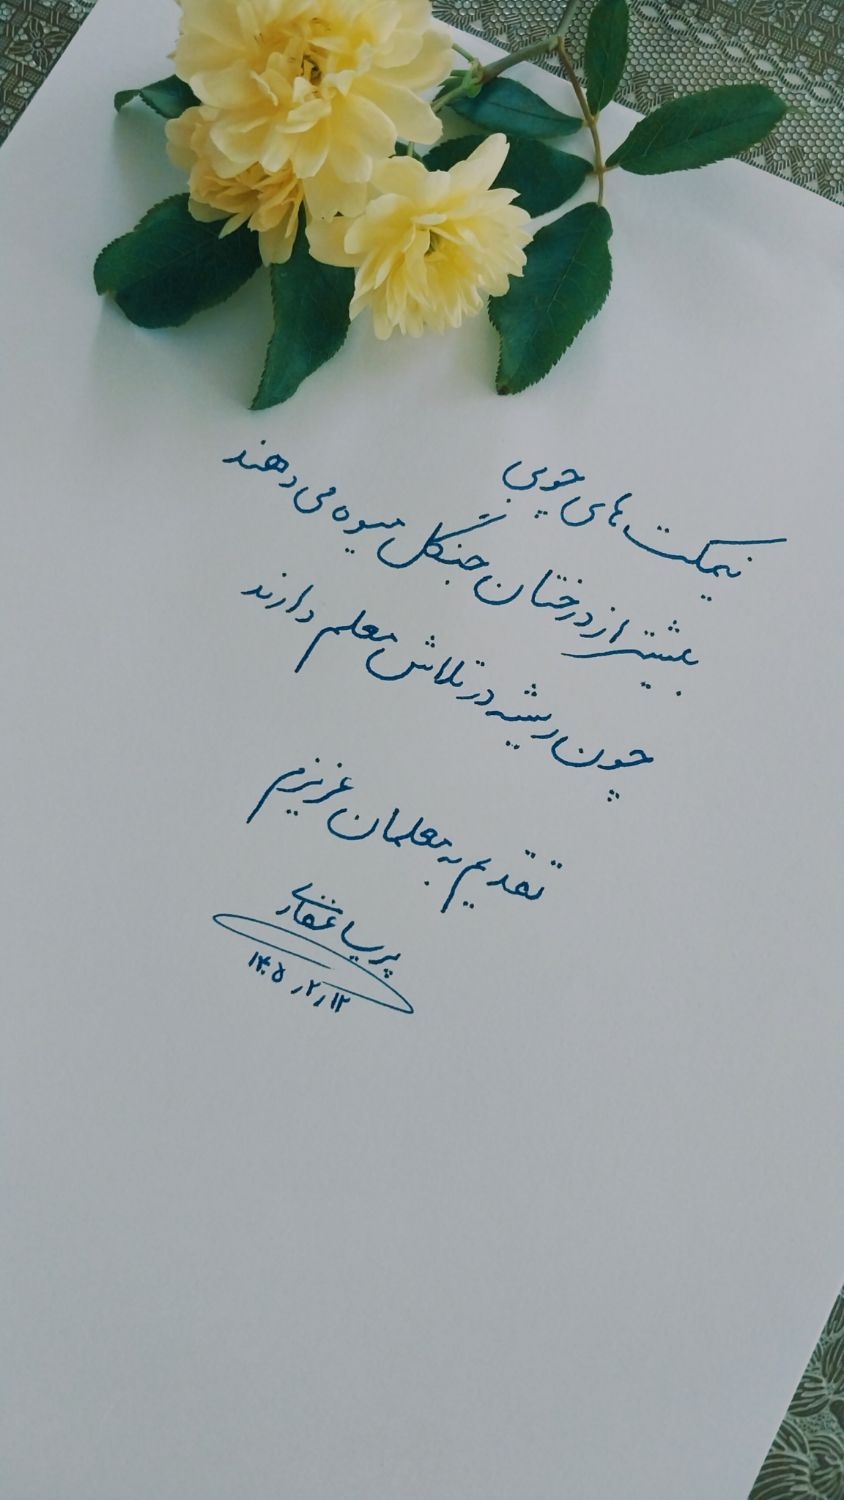 نیمکت های چوبی
بیشتر از درختان جنگل میوه می دهند
چون ریشه در تلاش معلم دارند
تقدیم به معلمان عزیزم
پریسا غفاری
۱۴۰۵٫۲٫۱۲